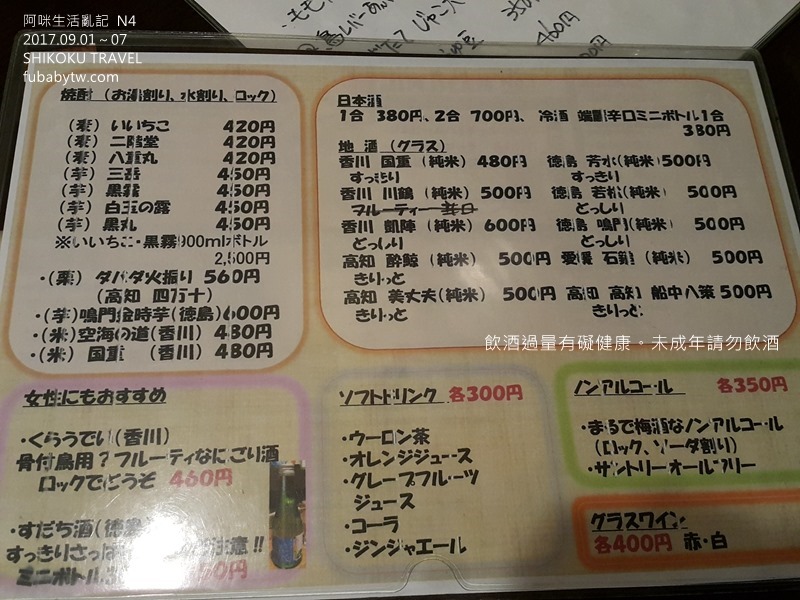 阿咪生活亂記 N4
2017.09.01～07
SHIKOKU TRAVEL
fubabytw.com
350円
460円
焼酎（お湯割り、水割り、ロック）
（麦）いいちこ 420円
（麦）二階堂 420円
（麦）八重丸 420円
（芋）三岳 450円
（芋）黒霧 450円
（芋）白玉の露 450円
（芋）黒丸 450円
※いいちこ・黒霧900mlボトル
2,500円
・（栗）ダバダ火振り 560円
（高知 四万十）
・（芋）鳴門金時芋（徳島）600円
・（米）空海の道（香川）480円
・（米）国重 （香川）480円
日本酒
1合 380円、2合 700円、冷酒 端麗辛口ミニボトル1合
380円
地 酒（グラス）
香川 国重（純米）480円 徳島 芳水（純米）500円
すっきり すっきり
香川 川鶴（純米）500円 徳島 若松（純米） 500円
フルーティー辛口 どっしり
香川 凱陣（純米）600円 徳島 鳴門（純米） 500円
どっしり どっしり
高知 酔鯨（純米） 500円 愛媛 石鎚（純米） 500円
きりっと
高知 美丈夫（純米） 500円 高知 船中八策 500円
きりっと きりっと
飲酒過量有礙健康。未成年請勿飲酒
女性にもおすすめ
・くらうでぃ（香川）
骨付鳥用？フルーティなにごり酒
ロックでどうぞ 460円
・すだち酒（徳島）
すっきりさっぱ 注意！！
ミニボトル
ソフトドリンク 各300円
・ウーロン茶
・オレンジジュース
・グレープフルーツ
ジュース
・コーラ
・ジンジャエール
ノンアルコール 各350円
・まるで梅酒なノンアルコール
（ロック、ソーダ割り）
・サントリーオールフリー
グラスワイン
各400円 赤・白